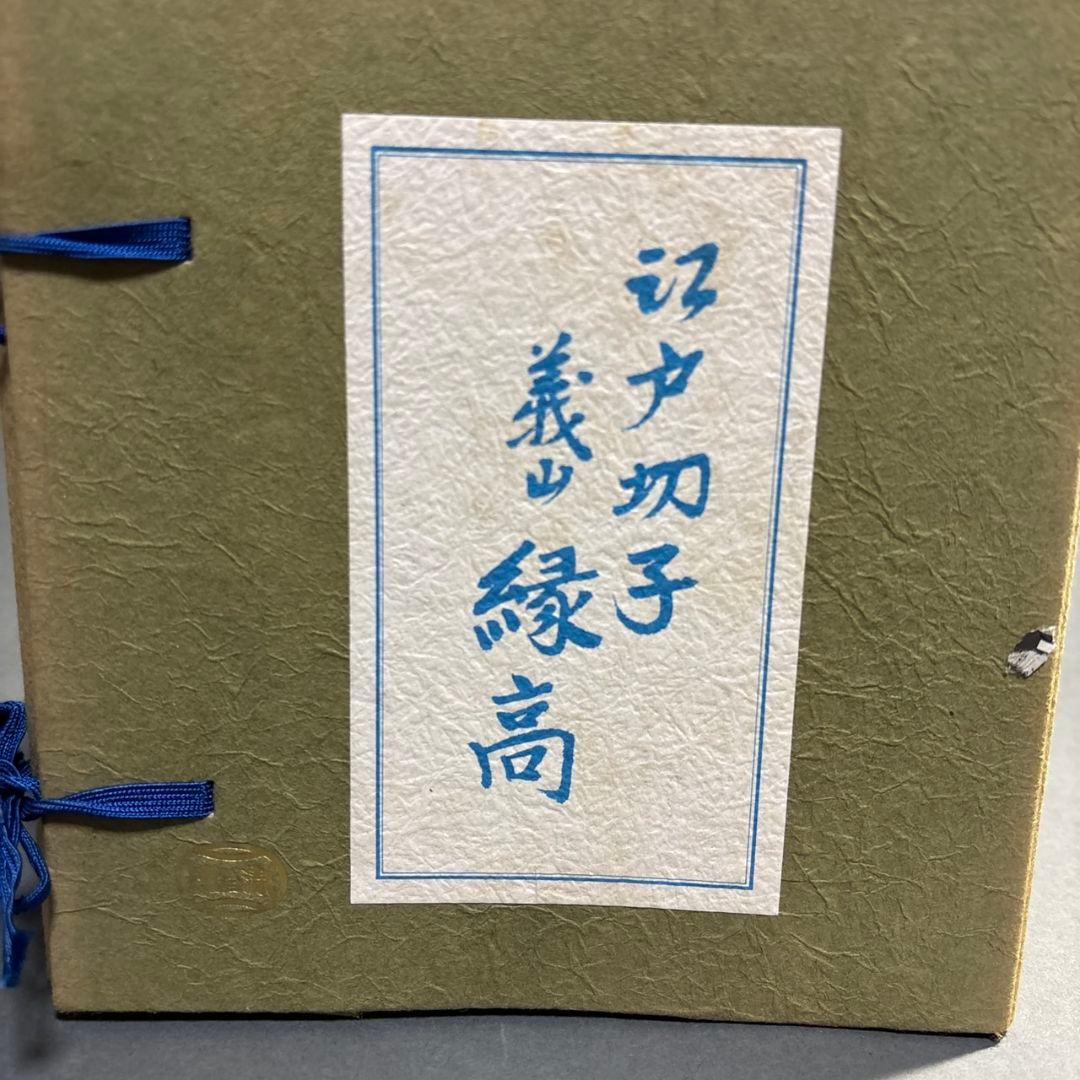 江戸切子
義山縁高